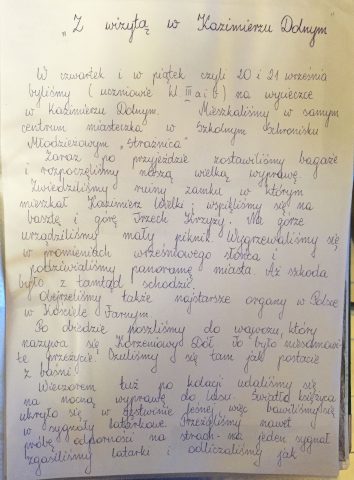 "Z wizytą w Kazimierzu Dolnym"
W czwartek i w piątek czyli 20 i 21 września
byliśmy (uczniowie kl. III a i b) na wycieczce
w Kazimierzu Dolnym. Mieszkaliśmy w samym
centrum miasteczka w Szkolnym Schronisku
Młodzieżowym „Strażnica"
Zaraz po przyjeździe zostawiliśmy bagaże
i rozpoczęliśmy naszą wielką wyprawę.
Zwiedziliśmy ruiny zamku w którym
mieszkał Kazimierz Wielki, wspięliśmy się na
basztę i górę Trzech Krzyży. Na górze
urządziliśmy mały piknik. Wygrzewaliśmy się
w promieniach wrześniowego słońca i
podziwialiśmy panoramę miasta. Aż szkoda
było z tamtąd schodzić.
Obejrzeliśmy także najstarsze organy w Polsce
w Kościele Farnym.
Po obiedzie poszliśmy do wąwozu, który
nazywa się Korzeniowy Dół. To było niesamowi-
te przeżycie. Czuliśmy się tam jak postacie
z baśni.
Wieczorem tuż po kolacji udaliśmy się
na nocną wyprawę do lasu. Światło księżyca
ukryło się w gęstwinie leśnej więc bawiliśmy się
w sygnały latarkowe. Przeżyliśmy nawet
próbę odporności na strach - na jeden sygnał
zgasiliśmy latarki i odliczaliśmy jak